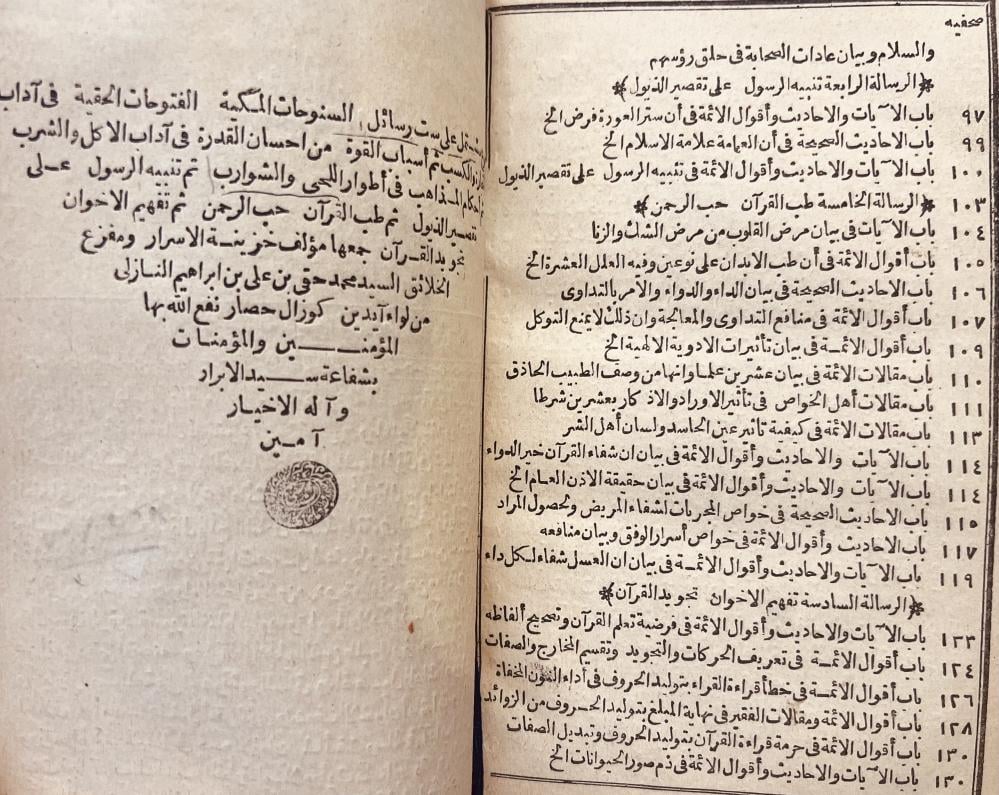 صحفيه
والسلام وبيان عادات الصحابة فى حلق رؤسهم
﴿الرسالة الرابعة تنبيه الرسول على تقصير الذيول﴾
٩٧ باب الآيات والاحاديث وأقوال الائمة فى أن ستر العورة فرض الخ
٩٩ باب الاحاديث الصحيحة فى أن العمامة علامة الاسلام الخ
١٠٠ باب الآيات والاحاديث وأقوال الائمة فى تنبيه الرسول على تقصير الذيول
١٠٣ ﴿الرسالة الخامسة طب القرآن حب الرحمن﴾
١٠٤ باب الآيات فى بيان مرض القلوب من مرض الشك والزنا
١٠٥ باب أقوال الائمة فى أن طب الابدان على نوعين وفيه العلل العشرة الخ
١٠٦ باب الاحاديث الصحيحة فى بيان الداء والدواء والامر بالتداوى
١٠٧ باب أقوال الائمة فى منافع التداوى والمعالجة وان ذلك لا يمنع التوكل
١٠٩ باب أقوال الائمة فى بيان تأثيرات الادوية الالهية الخ
١١٠ باب مقالات الائمة فى بيان عشرين علما وانها من وصف الطبيب الحاذق
١١١ باب مقالات أهل الخواص فى تأثير الاوراد والاذكار بعشرين شرطا
١١٣ باب مقالات الائمة فى كيفية تاثير عين الحاسد ولسان أهل الشر
١١٤ باب الآيات والاحاديث وأقوال الائمة فى بيان ان شفاء القرآن خير الدواء
١١٤ باب الآيات والاحاديث وأقوال الائمة فى بيان حقيقة الاذن العام الخ
١١٥ باب الاحاديث الصحيحة فى خواص المجربات لشفاء المريض وتحصول المراد
١١٧ باب الاحاديث وأقوال الائمة فى خواص أسرار الوفق وبيان منافعه
١١٩ باب الآيات والاحاديث وأقوال الائمة فى بيان ان العسل شفاء لكل داء
﴿الرسالة السادسة تفهيم الاخوان تجويد القرآن﴾
١٢٣ باب الآيات والاحاديث وأقوال الائمة فى فرضية تعلم القرآن وتصحيح ألفاظه
١٢٤ باب أقوال الائمة فى تعريف الحركات والتجويد وتقسيم المخارج والصفات
١٢٦ باب أقوال الائمة فى خطأ قراءة القراء بتوليد الحروف فى أداء النون المخفاة
١٢٨ باب أقوال الائمة ومقالات الفقير فى نهاية المبلغ بتوليد الحروف من الزوائد
١٣٠ باب أقوال الائمة فى حرمة قراءة القرآن بتوليد الحروف وتبديل الصفات
١٣٠ باب الآيات والاحاديث وأقوال الائمة فى ذم صور الحيوانات الخ
على ست رسائل السنوحات المكية الفتوحات الحقية فى آداب
والكسب ثم أسباب القوة من احسان القدرة فى آداب الاكل والشرب
احكام المذاهب فى أطوار اللحى والشوارب ثم تنبيه الرسول على
تقصير الذيول ثم طب القرآن حب الرحمن ثم تفهيم الاخوان
تجويد القرآن جمعها مؤلف خزينة الاسرار ومفزع
الخلائق السيد محمد حقى بن على بن ابراهيم النازلى
من لواء آيدين كوزال حصار نفع الله بها
المؤمنين والمؤمنات
بشفاعة سيد الابرار
وآله الاخيار
آمين